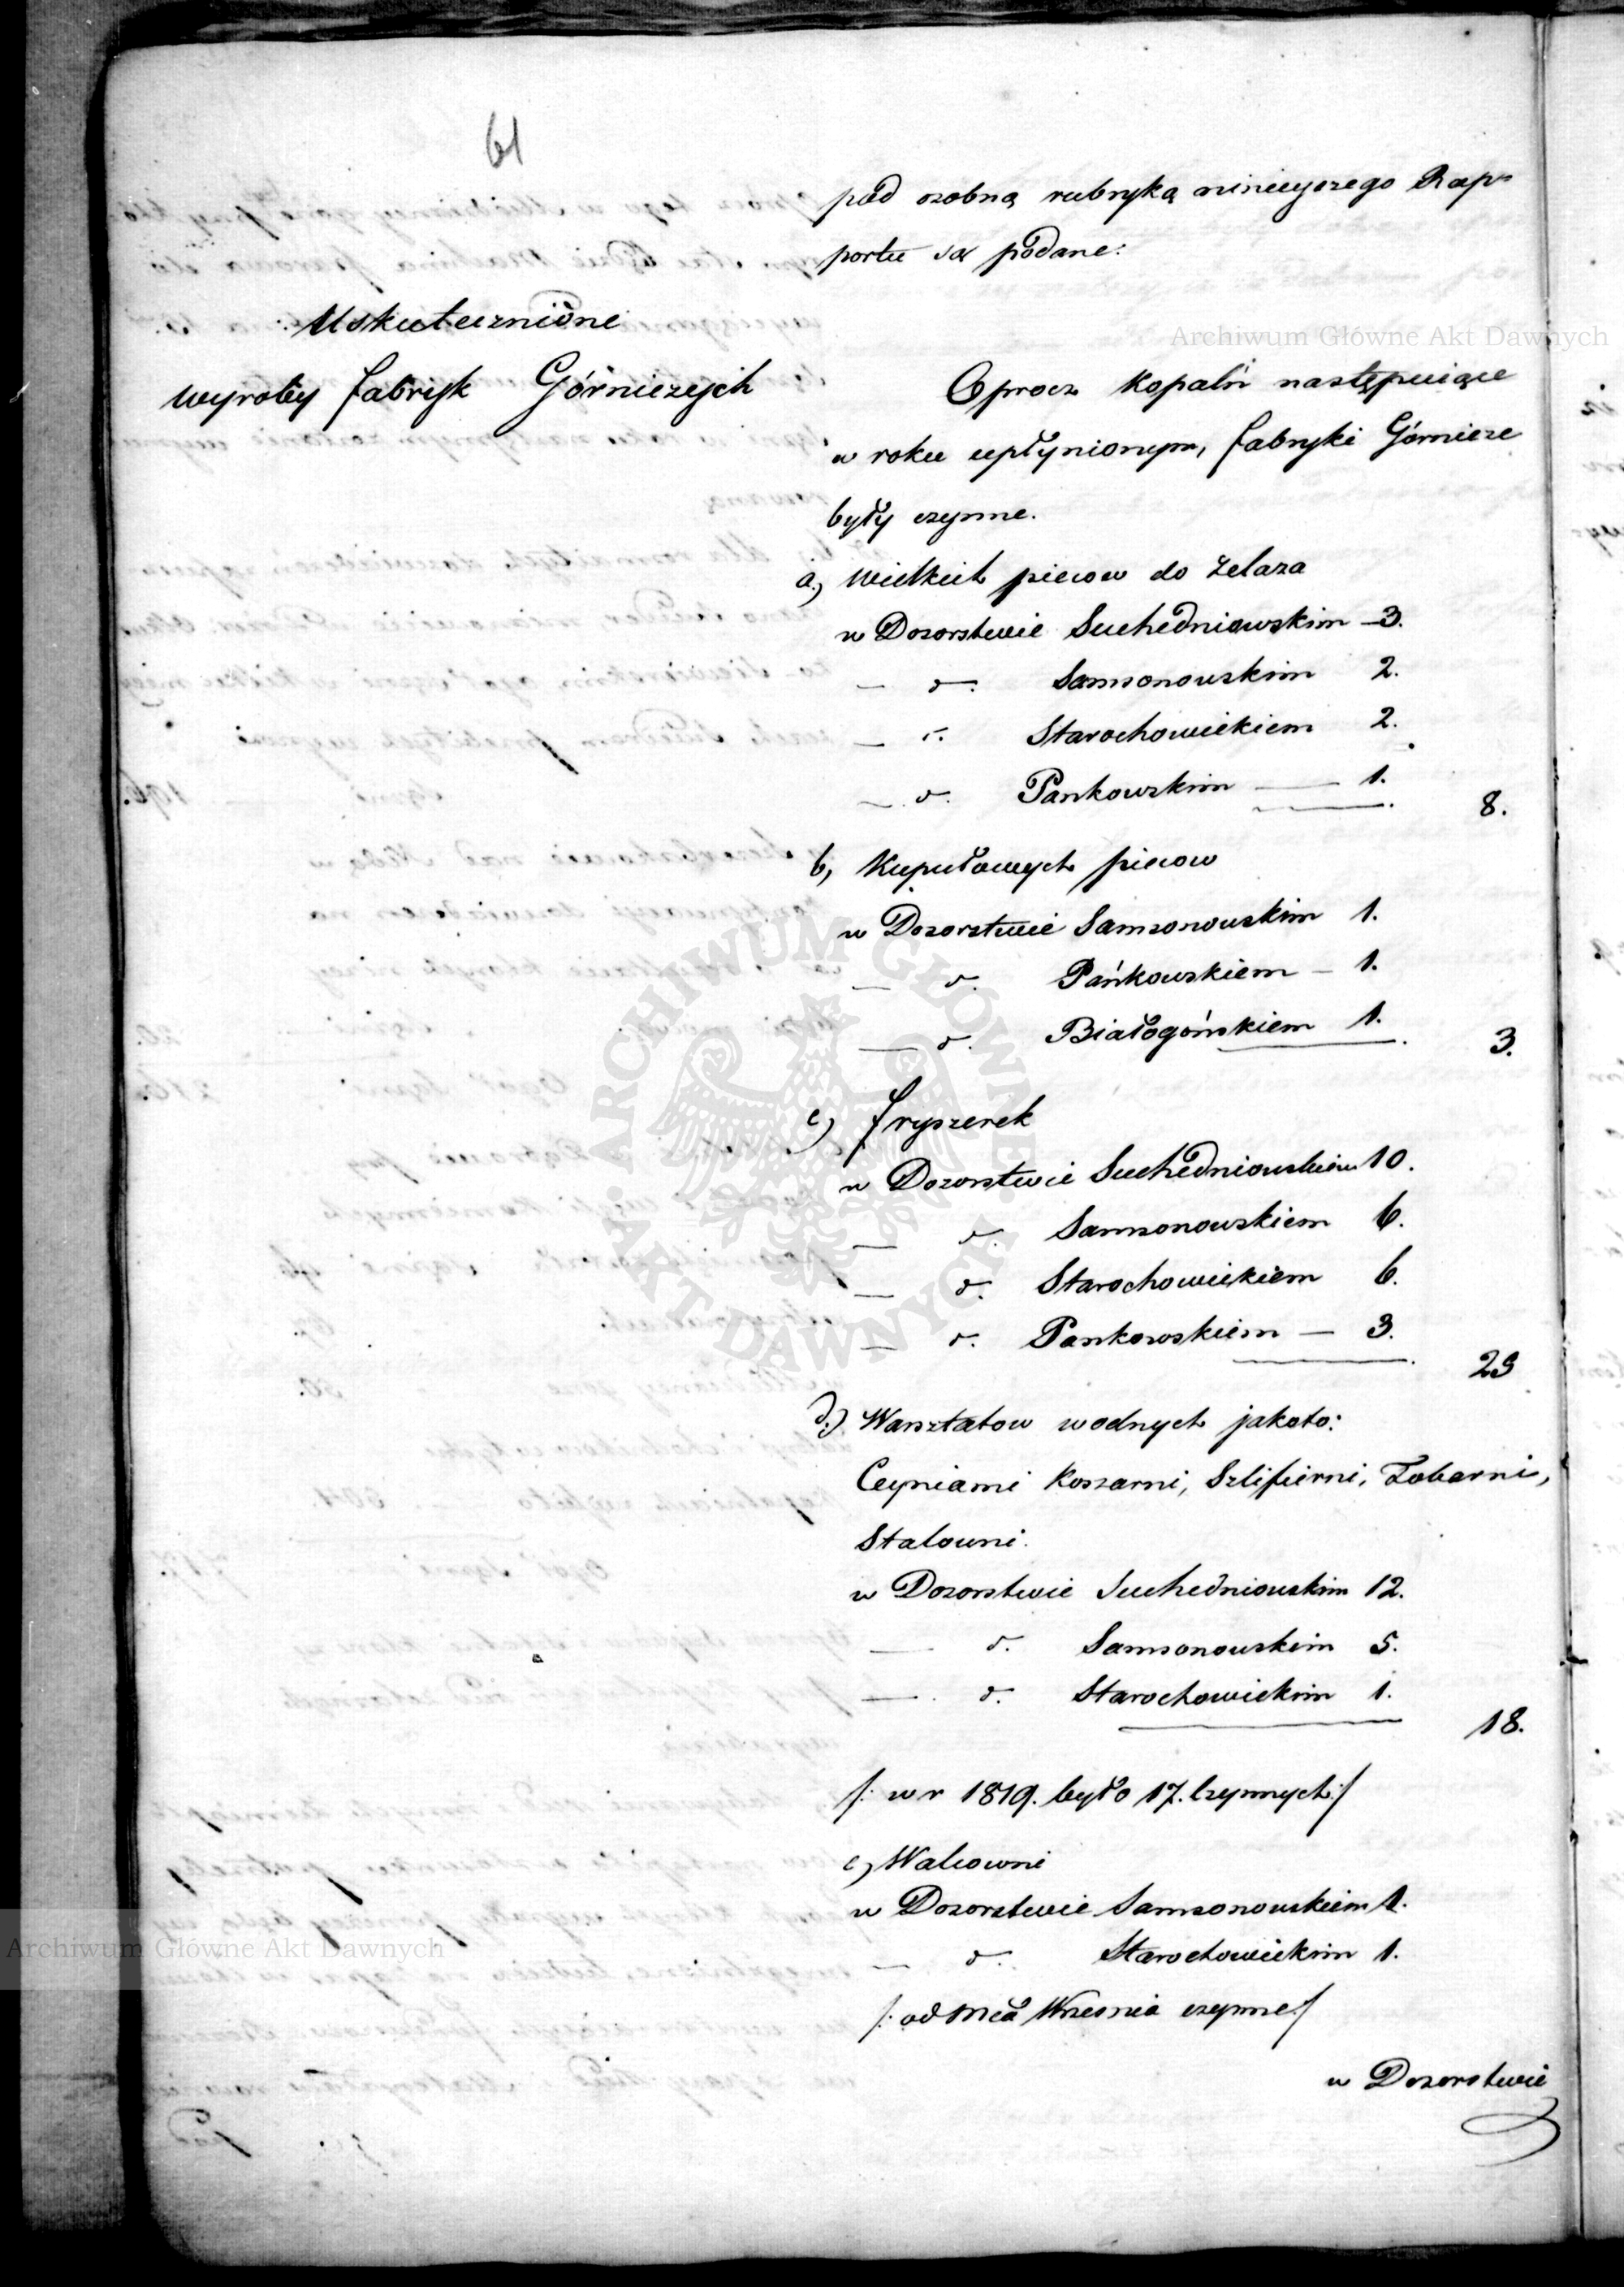 61
pod osobną rubryką ninieyszego Rap-
portu są podane:
Uskutecznione
wyroby fabryk Górniczych
Oprocz kopalń następuiące
w roku upłynionym, fabryki Górnicze
były czynne.
a.) Wielkich piecow do żelaza
w Dozorstwie Suchedniowskim — 3.
— d°. Samsonowskim 2.
— d°. Starochowickiem 2.
— d°. Pankowskim — 1.
8.
b, Kupułowych piecow
w Dozorstwie Samsonowskim 1.
— d°. Pańkowskiem — 1.
— d°. Białogońskiem 1.
3.
c) fryszerek
w Dozorstwie Suchedniowskiem 10.
— d°. Samsonowskiem 6.
— d°. Starochowickiem 6.
— d°. Pankowskiem — 3.
25
d.) Warsztatow wodnych jakoto:
Cayniami Koszarni, Szlifierni,
Stalowni.
w Dozorstwie Suchedniowskim 12.
— d°. Samsonowskim 5.
— d°. Starochowickim 1.
18.
/: w r 1819. było 17. Czynnych :/
e, Walcowni
w Dozorstwie Samsonowskiem 1.
— d°. Starochowickim 1.
/: od Mca Wrzesnia czynne :/
w Dozorstwie
Archiwum Główne Akt Dawnych
Archiwum Główne Akt Dawnych
• ARCHIWUM GŁÓWNE • AKT DAWNYCH